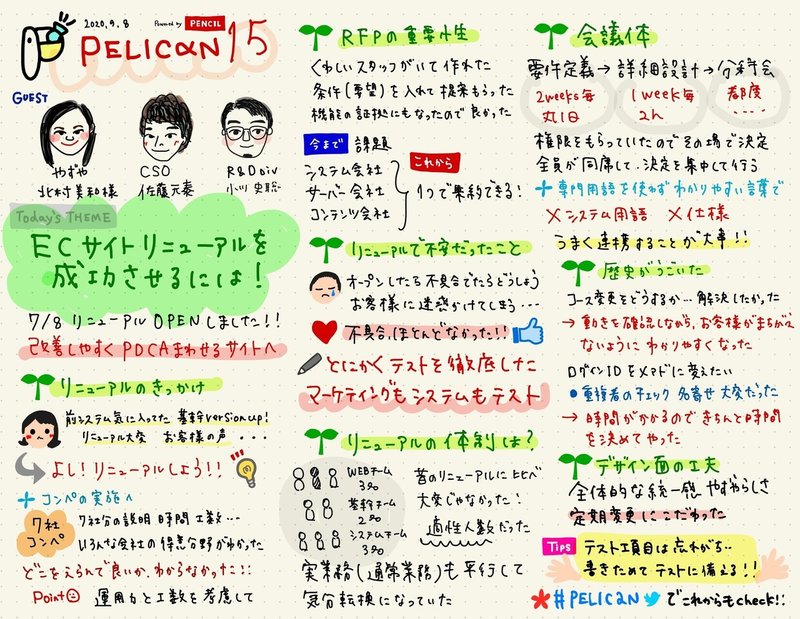 2020.9.8
Powered by PENCIL
PELICAN 15
GUEST
やずや
北村美和様
CSO
佐藤元泰
R&D Div
小川 史聡
Today's THEME
ECサイトリニューアルを
成功させるには!
7/8 リニューアル OPENしました!!
改善しやすく PDCAまわせるサイトへ
リニューアルのきっかけ
前システム気に入ってた 基幹version up!
リニューアル大変 お客様の声・・・
よし!リニューアルしよう!!
+ コンペの実施へ
7社
コンペ
7社分の説明 時間 工数…
いろんな会社の得意分野がわかった
どこをえらんで良いか、わからなかった!!
Point
運用力と工数を考慮して
RFPの重要性
くわしいスタッフがいて作れた
条件(要望)を入れて提案もらった
機能の証拠にもなったので良かった
今まで 課題
これから
システム会社
サーバー会社
コンテンツ会社
1つで集約できる!
リニューアルで不安だったこと
オープンしたら不具合でたらどうしよう
お客様に迷惑かけてしまう・・・
不具合、ほとんどなかった!!
とにかくテストを徹底した
マーケティングもシステムもテスト
リニューアルの体制は?
WEBチーム
3名
基幹チーム
2名
システムチーム
3名
昔のリニューアルに比べ
大変じゃなかった!
適性人数だった
実業務(通常業務)も平行して
気分転換になっていた
会議体
要件定義→詳細設計→分科会
2weeks毎
丸1日
1week毎
2h
都度
・・・・
権限をもらっていたのでその場で決定
全員が同席して、決定を集中して行う
+ 専門用語を使わずわかりやすい言葉で
×システム用語 ×仕様
うまく連携することが大事!!
歴史がうごいた
コース変更をどうするか…解決したかった
→ 動きを確認しながら、お客様がまちがえ
ないようにわかりやすくなった
ログインIDをメアドに変えたい
● 重複者のチェック 名寄せ 大変だった
→ 時間がかかるので きちんと時間
を決めてやった
デザイン面の工夫
全体的な統一感 やずやらしさ
定期変更にこだわった
Tips
テスト項目は忘れがち・・
書きためて テストに備える!!
*#PELICAN でこれからもcheck!!